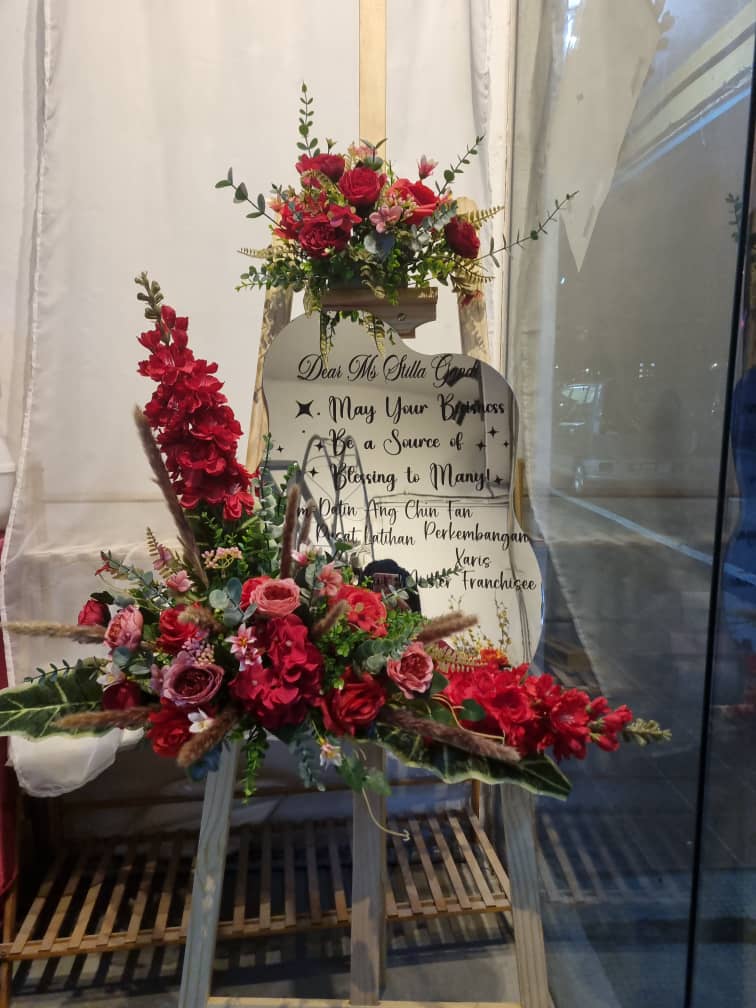 Dear Ms Stilla Gandi
May Your Business
Be a Source of
Blessing to Many!
Datin Ang Chin Tan
Pusat Latihan Perkembangan
Xaris
Franchisee